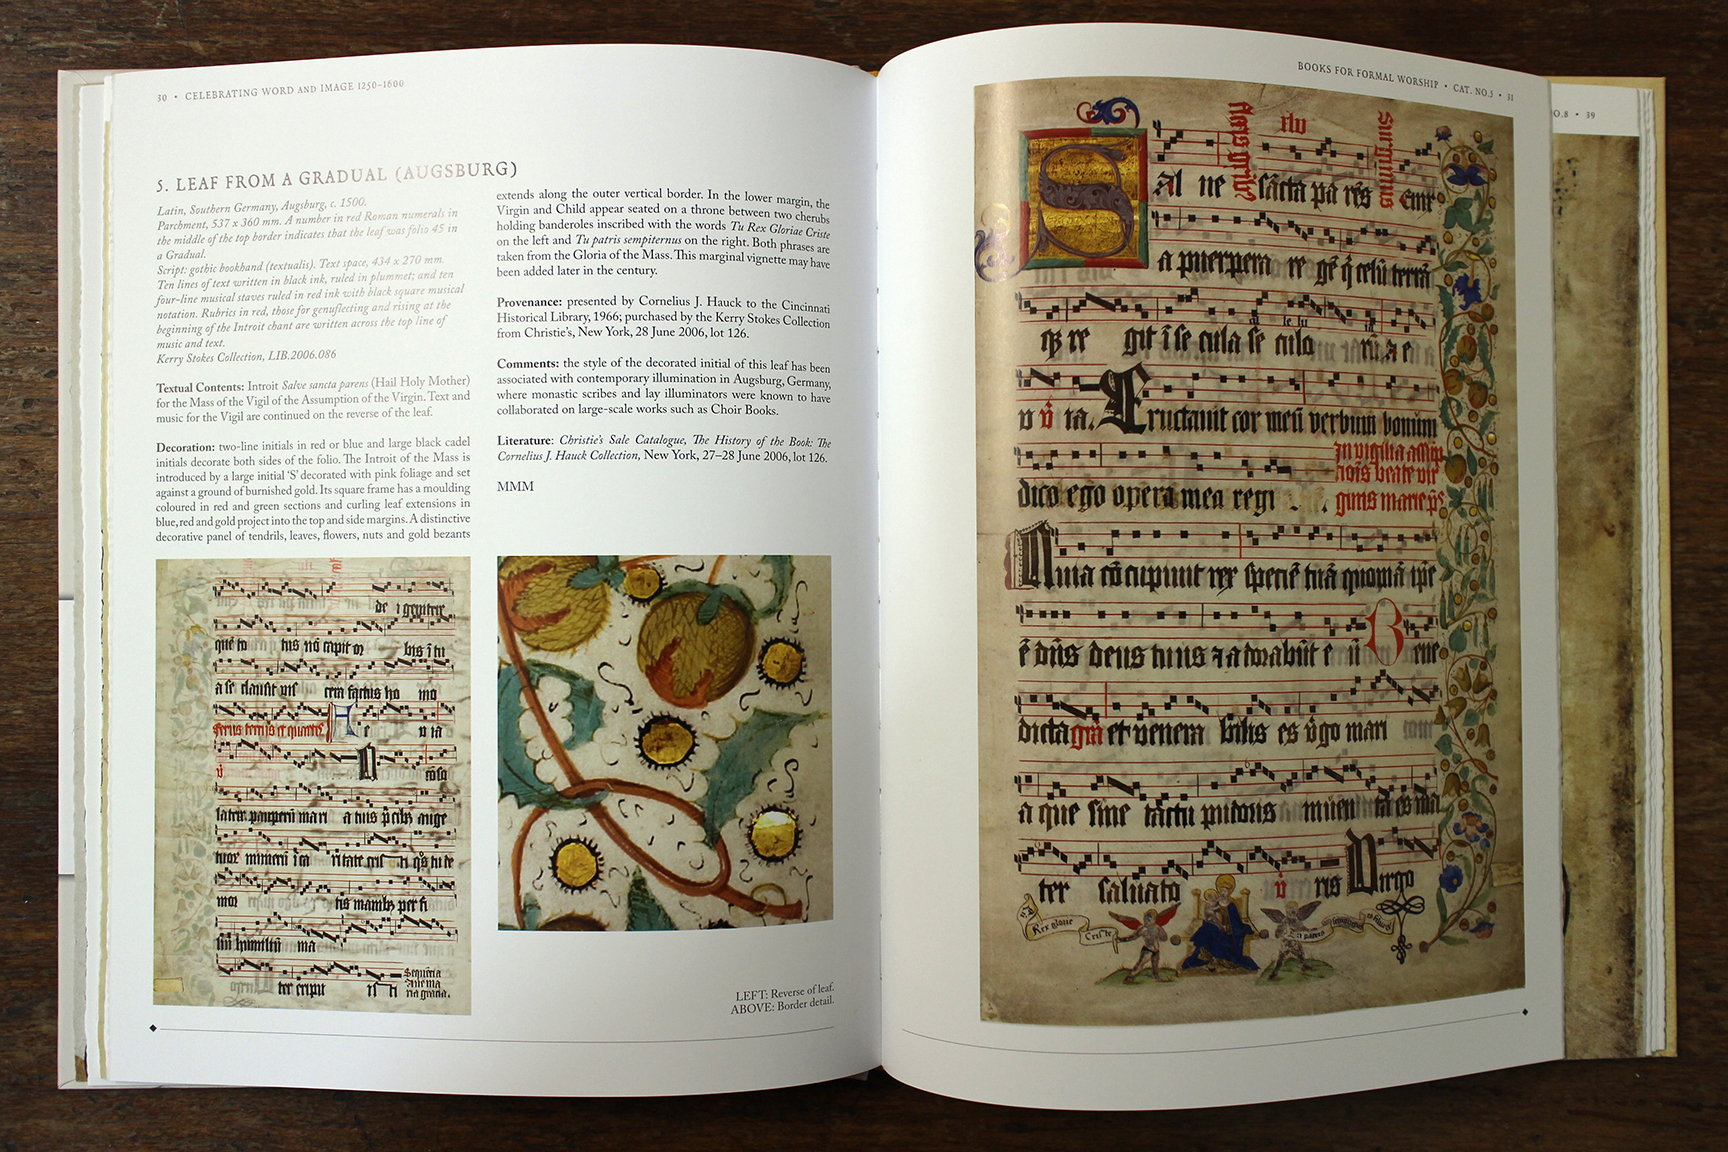 30 • CELEBRATING WORD AND IMAGE 1250–1600
5. LEAF FROM A GRADUAL (AUGSBURG)
Latin, Southern Germany, Augsburg, c. 1500.
Parchment, 537 x 360 mm. A number in red Roman numerals in
the middle of the top border indicates that the leaf was folio 45 in
a Gradual.
Script: gothic bookhand (textualis). Text space, 434 x 270 mm.
Ten lines of text written in black ink, ruled in plummet; and ten
four-line musical staves ruled in red ink with black square musical
notation. Rubrics in red, those for genuflecting and rising at the
beginning of the Introit chant are written across the top line of
music and text.
Kerry Stokes Collection, LIB.2006.086
Textual Contents: Introit Salve sancta parens (Hail Holy Mother)
for the Mass of the Vigil of the Assumption of the Virgin. Text and
music for the Vigil are continued on the reverse of the leaf.
Decoration: two-line initials in red or blue and large black cadel
initials decorate both sides of the folio. The Introit of the Mass is
introduced by a large initial 'S' decorated with pink foliage and set
against a ground of burnished gold. Its square frame has a moulding
coloured in red and green sections and curling leaf extensions in
blue, red and gold project into the top and side margins. A distinctive
decorative panel of tendrils, leaves, flowers, nuts and gold bezants
extends along the outer vertical border. In the lower margin, the
Virgin and Child appear seated on a throne between two cherubs
holding banderoles inscribed with the words Tu Rex Gloriae Criste
on the left and Tu patris sempiternus on the right. Both phrases are
taken from the Gloria of the Mass. This marginal vignette may have
been added later in the century.
Provenance: presented by Cornelius J. Hauck to the Cincinnati
Historical Library, 1966; purchased by the Kerry Stokes Collection
from Christie's, New York, 28 June 2006, lot 126.
Comments: the style of the decorated initial of this leaf has been
associated with contemporary illumination in Augsburg, Germany,
where monastic scribes and lay illuminators were known to have
collaborated on large-scale works such as Choir Books.
Literature: Christie's Sale Catalogue, The History of the Book: The
Cornelius J. Hauck Collection, New York, 27–28 June 2006, lot 126.
MMM
de i genitrix
LEFT: Reverse of leaf.
ABOVE: Border detail.
BOOKS FOR FORMAL WORSHIP • CAT. NO.5 • 31
xlv
Sal ve sācta pa rēs enix
a puerpera re gē q̄ celū terrā
git ī se cula se culo
Eructauit cor meū verbum bonum
dico ego opera mea regi
In vigilia assūp
beate vir
ginis marie
cōcupiuit rex speciē tuā quoniā ip̄e
ē dn̄s deus tuus adorabūt e ū Bene
dicta et venera bilis es v̄go mari
a que sine tactu pudoris inuen ta es ma
ter saluato ris Virgo
Rex glorie
Criste
O.8 • 39